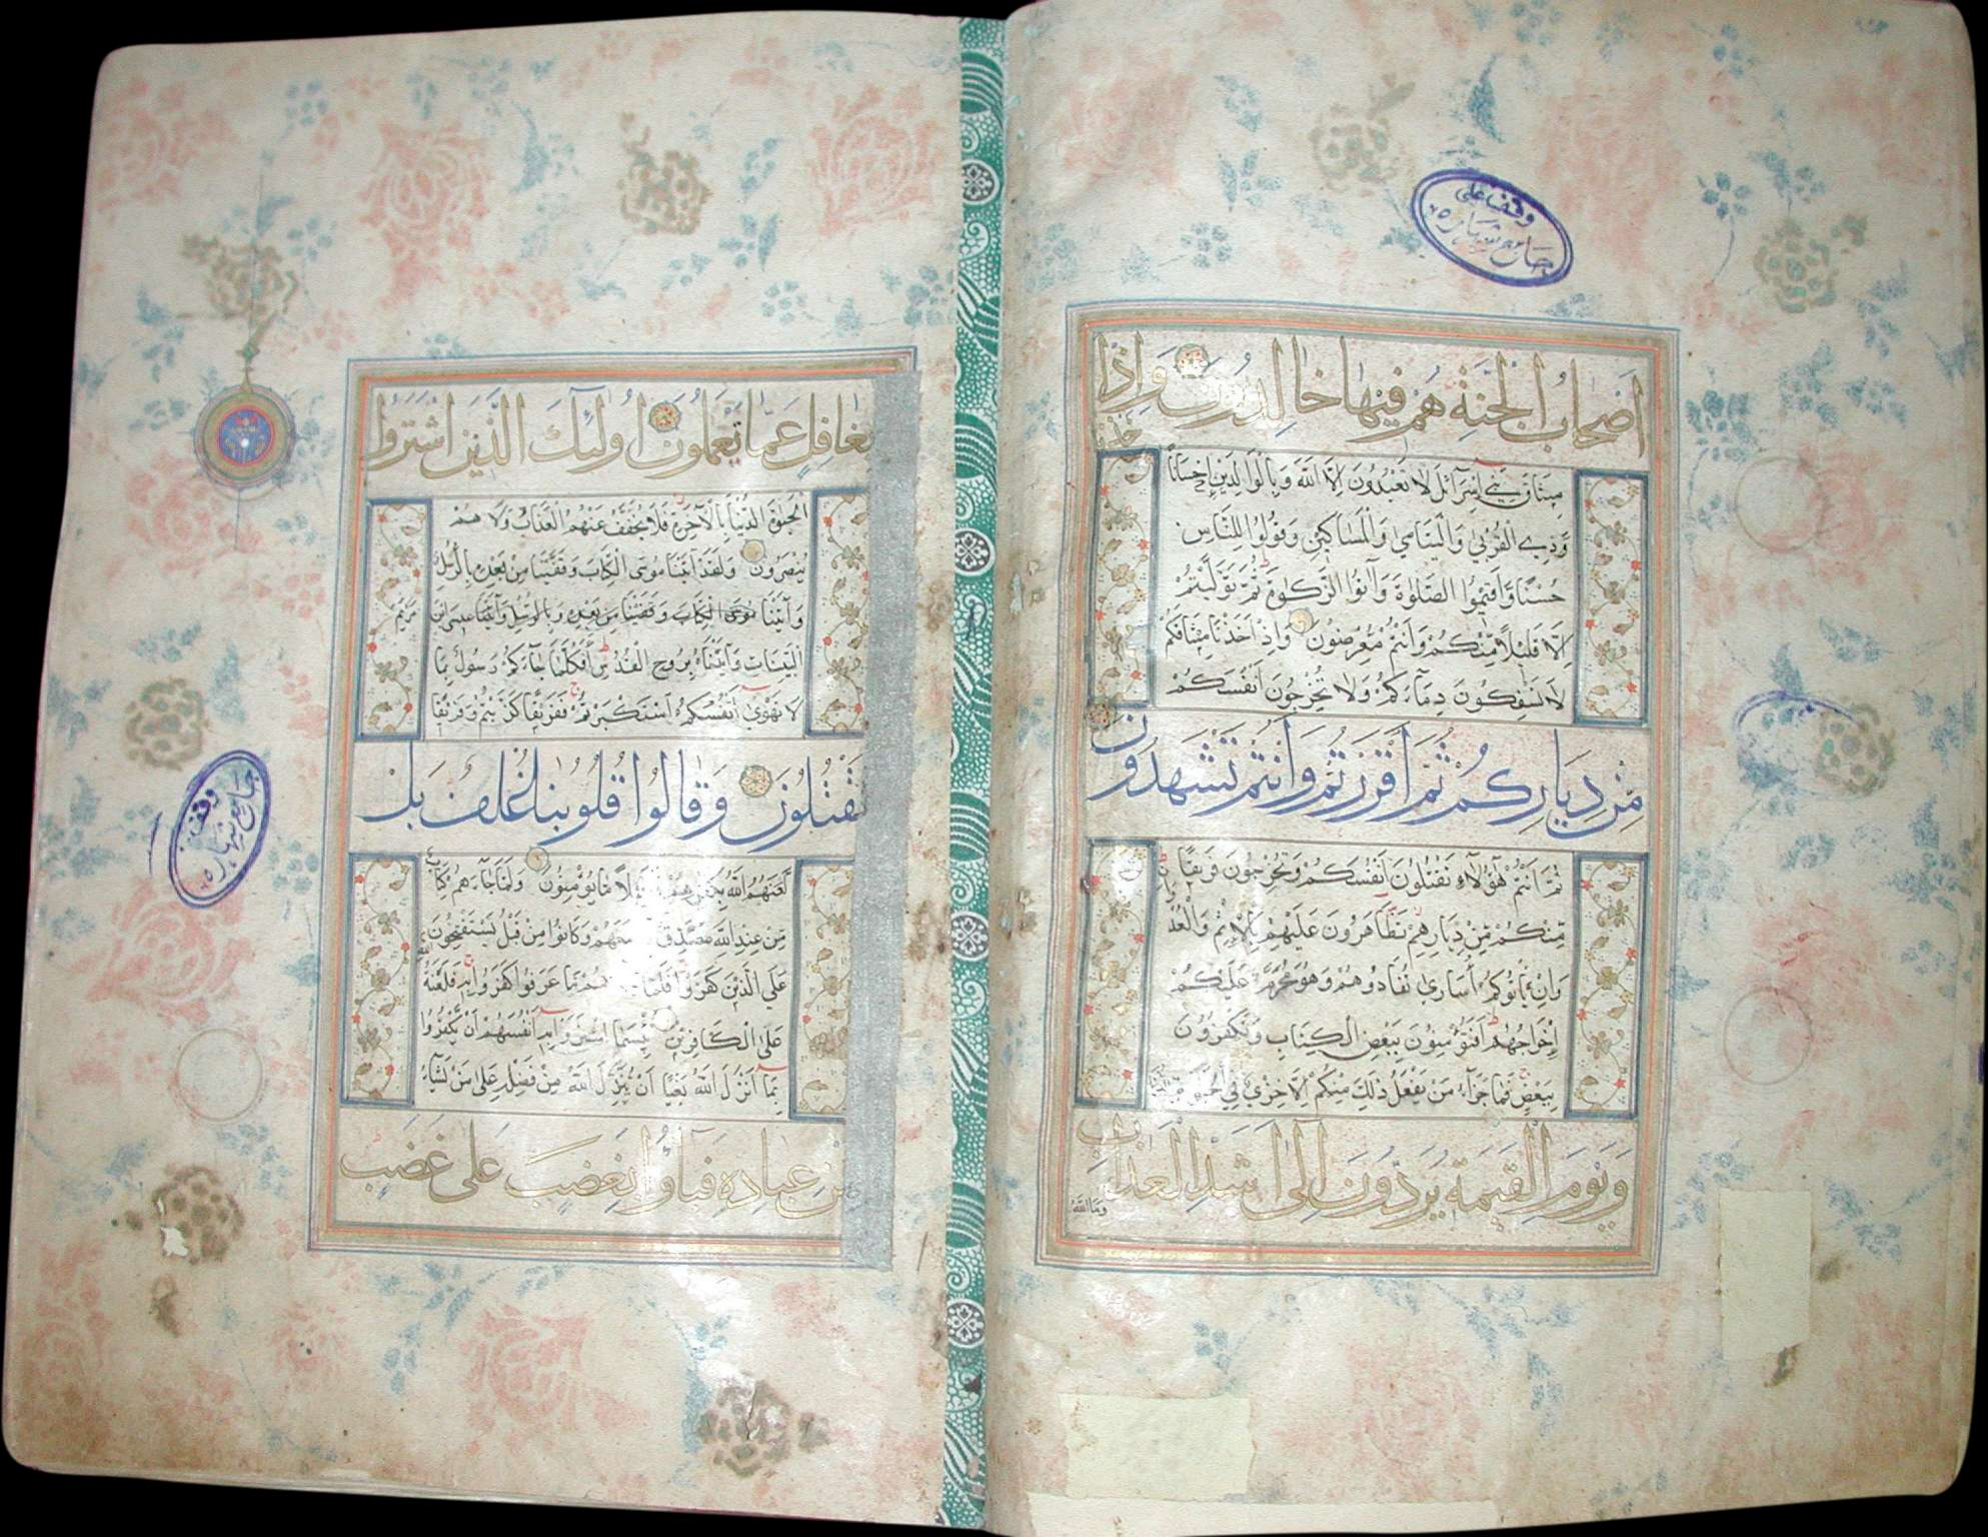 وقف على
جامع
اصحاب الجنة هم فيها خالدون واذا
اخذنا
ميثاق بني اسرآئل لا تعبدون الا الله وبالوالدين احسانا
وذي القربى واليتامى والمساكين وقولوا للناس
حسنا واقيموا الصلوة وآتوا الزكوة ثم توليتم
الا قليلا منكم وانتم معرضون واذ اخذنا ميثاقكم
لا تسفكون دمآءكم ولا تخرجون انفسكم
من دياركم ثم اقررتم وانتم تشهدون
ثم انتم هؤلآء تقتلون انفسكم وتخرجون فريقا
منكم من ديارهم تظاهرون عليهم بالاثم والعد
وان
وان يأتوكم اسارى تفادوهم وهو محرم عليكم
اخراجهم افتؤمنون ببعض الكتاب وتكفرون
ببعض فما جزآء من يفعل ذلك منكم الا خزي في الحيوة الدنيا
ويوم القيمة يردون الى اشد العذاب
وما الله
بغافل عما تعملون اولئك الذين اشتروا
الحيوة الدنيا بالآخرة فلا يخفف عنهم العذاب ولا هم
ينصرون ولقد آتينا موسى الكتاب وقفينا من بعده بالرسل
وآتينا موسى الكتاب وقفينا من بعده وبالرسل وآتينا عيسى ابن مريم
البينات وايدناه بروح القدس افكلما جآءكم رسول بما
لا تهوى انفسكم استكبرتم ففريقا كذبتم وفريقا
تقتلون وقالوا قلوبنا غلف بل
لعنهم الله بكفرهم فقليلا ما يؤمنون ولما جآءهم كتاب
من عند الله مصدق لما معهم وكانوا من قبل يستفتحون
على الذين كفروا فلما جآءهم ما عرفوا كفروا به فلعنة الله
على الكافرين بئسما اشتروا به انفسهم ان يكفروا
بما انزل الله بغيا ان ينزل الله من فضله على من يشآء
من عباده فبآؤا بغضب على غضب
وقف
جامع